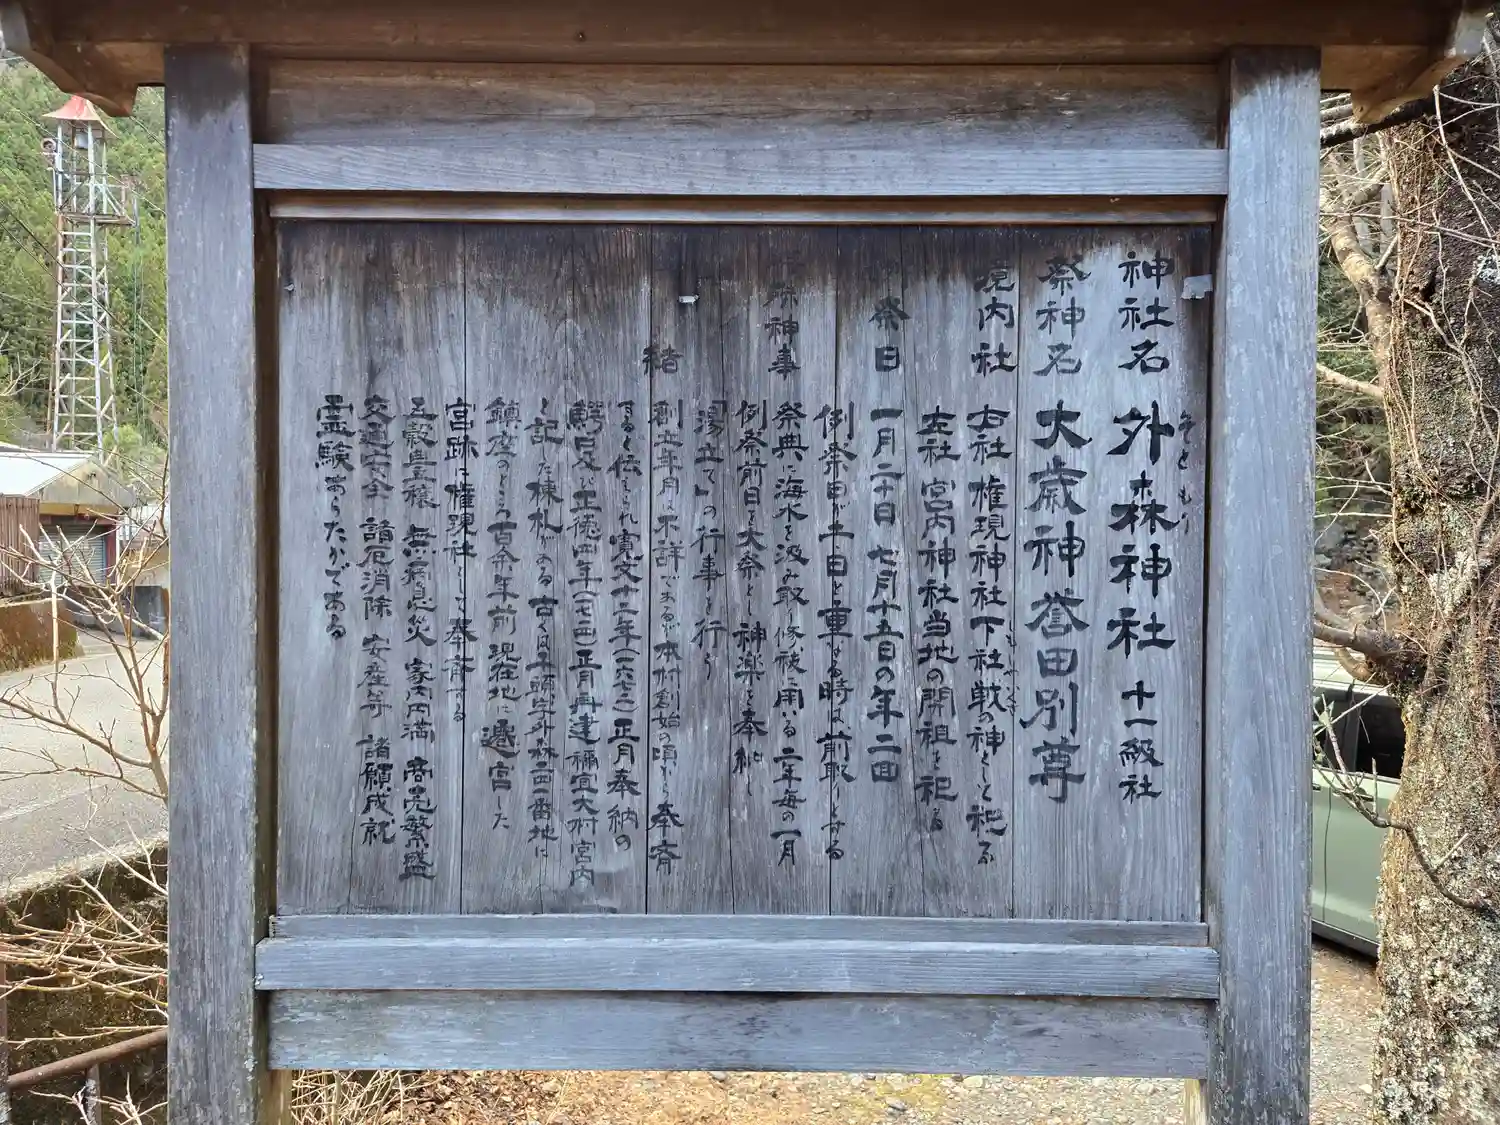 神社名 外森神社 十一級社
そともり
祭神名 大歳神 誉田別尊
境内社 右社 権現神社 下社 戦の神として祀る
左社 宮内神社 当地の開祖を祀る
祭日 一月二十日 七月十五日の年二回
例祭日が土日と重なる時は前取りとする
神事 祭典に海水を汲み取り修祓に用いる 二年毎の一月
例祭前日を大祭とし神楽を奉納し
「湯立て」の行事を行う
緒 創立年月は不詳であるが本村創始の頃から奉斎
すると伝えられ 寛文十二年(一六七二)正月奉納の
鰐口及び正徳四年(一七一四)正月再建 禰宜大村宮内
と記した棟札がある 古くは字外森一番地に
鎮座のところ百余年前 現在地に遷宮した
宮跡に権現社として奉斎する
五穀豊穣 無病息災 家内円満 商売繁盛
交通安全 諸厄消除 安産等 諸願成就
霊験あらたかである